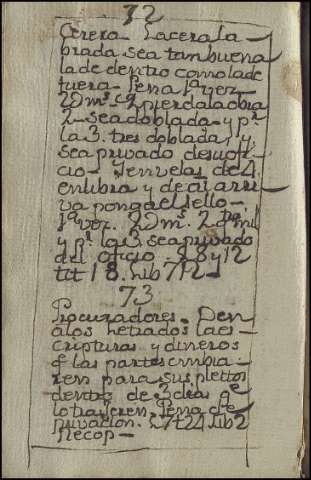 72
Cerero La cera la-
brada sea tan buena
la de dentro como la de
fuera - Pena 1ª vez
2 y pierda la obra
2 - sea doblada - y pr
la 3. tres doblada, y
sea privado de su ofi-
cio - Y en velas de 4
en libra y de ai arri
va ponga el sello -
1ª vez.
y pr la 3 sea privado
del oficio. 8 y 12
tit 18. lib 7
73
Procuradores. Den
a los letrados las es
cripturas y dineros
q las partes embia
ren para sus pleitos
dentro de 3 dias q e
lo trajeren. Pena de
privacion. L 7 t 24 Lib 2
Recop -